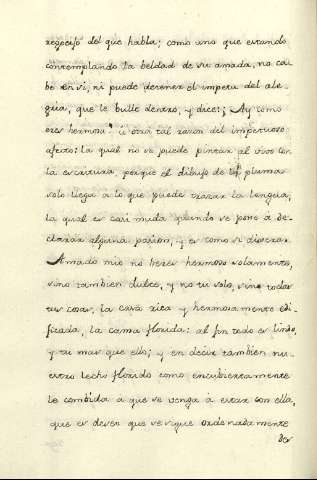 regocijo del que habla; como uno que estando
contemplando la beldad de su amada, no ca
be en si, ni puede detener el impetu del ale-
gria, que le bulle dentro, y dice: ¡Ay como
eres hermosa! ù otra tal razon del impetuoso
afecto: la qual no se puede pintar al vivo con
la escritura, porque el dibujo de la pluma
solo llega a lo que puede trazar la lengua,
la qual es casi muda quando se pone á de-
clarar alguna pasion, y es como si dixera:
Amado mio no heres hermoso solamente,
sino tambien dulce, y no tu solo, sino todas
tus cosas, la casa rica y hermosamente edi-
ficada, la cama florida: al fin todo es lindo,
y tu mas que ello; y en decir tambien nu-
estro lecho florido como encubiertamente
le combida a que se venga á estar con ella,
que es deseo que se sigue ordenadamente
des